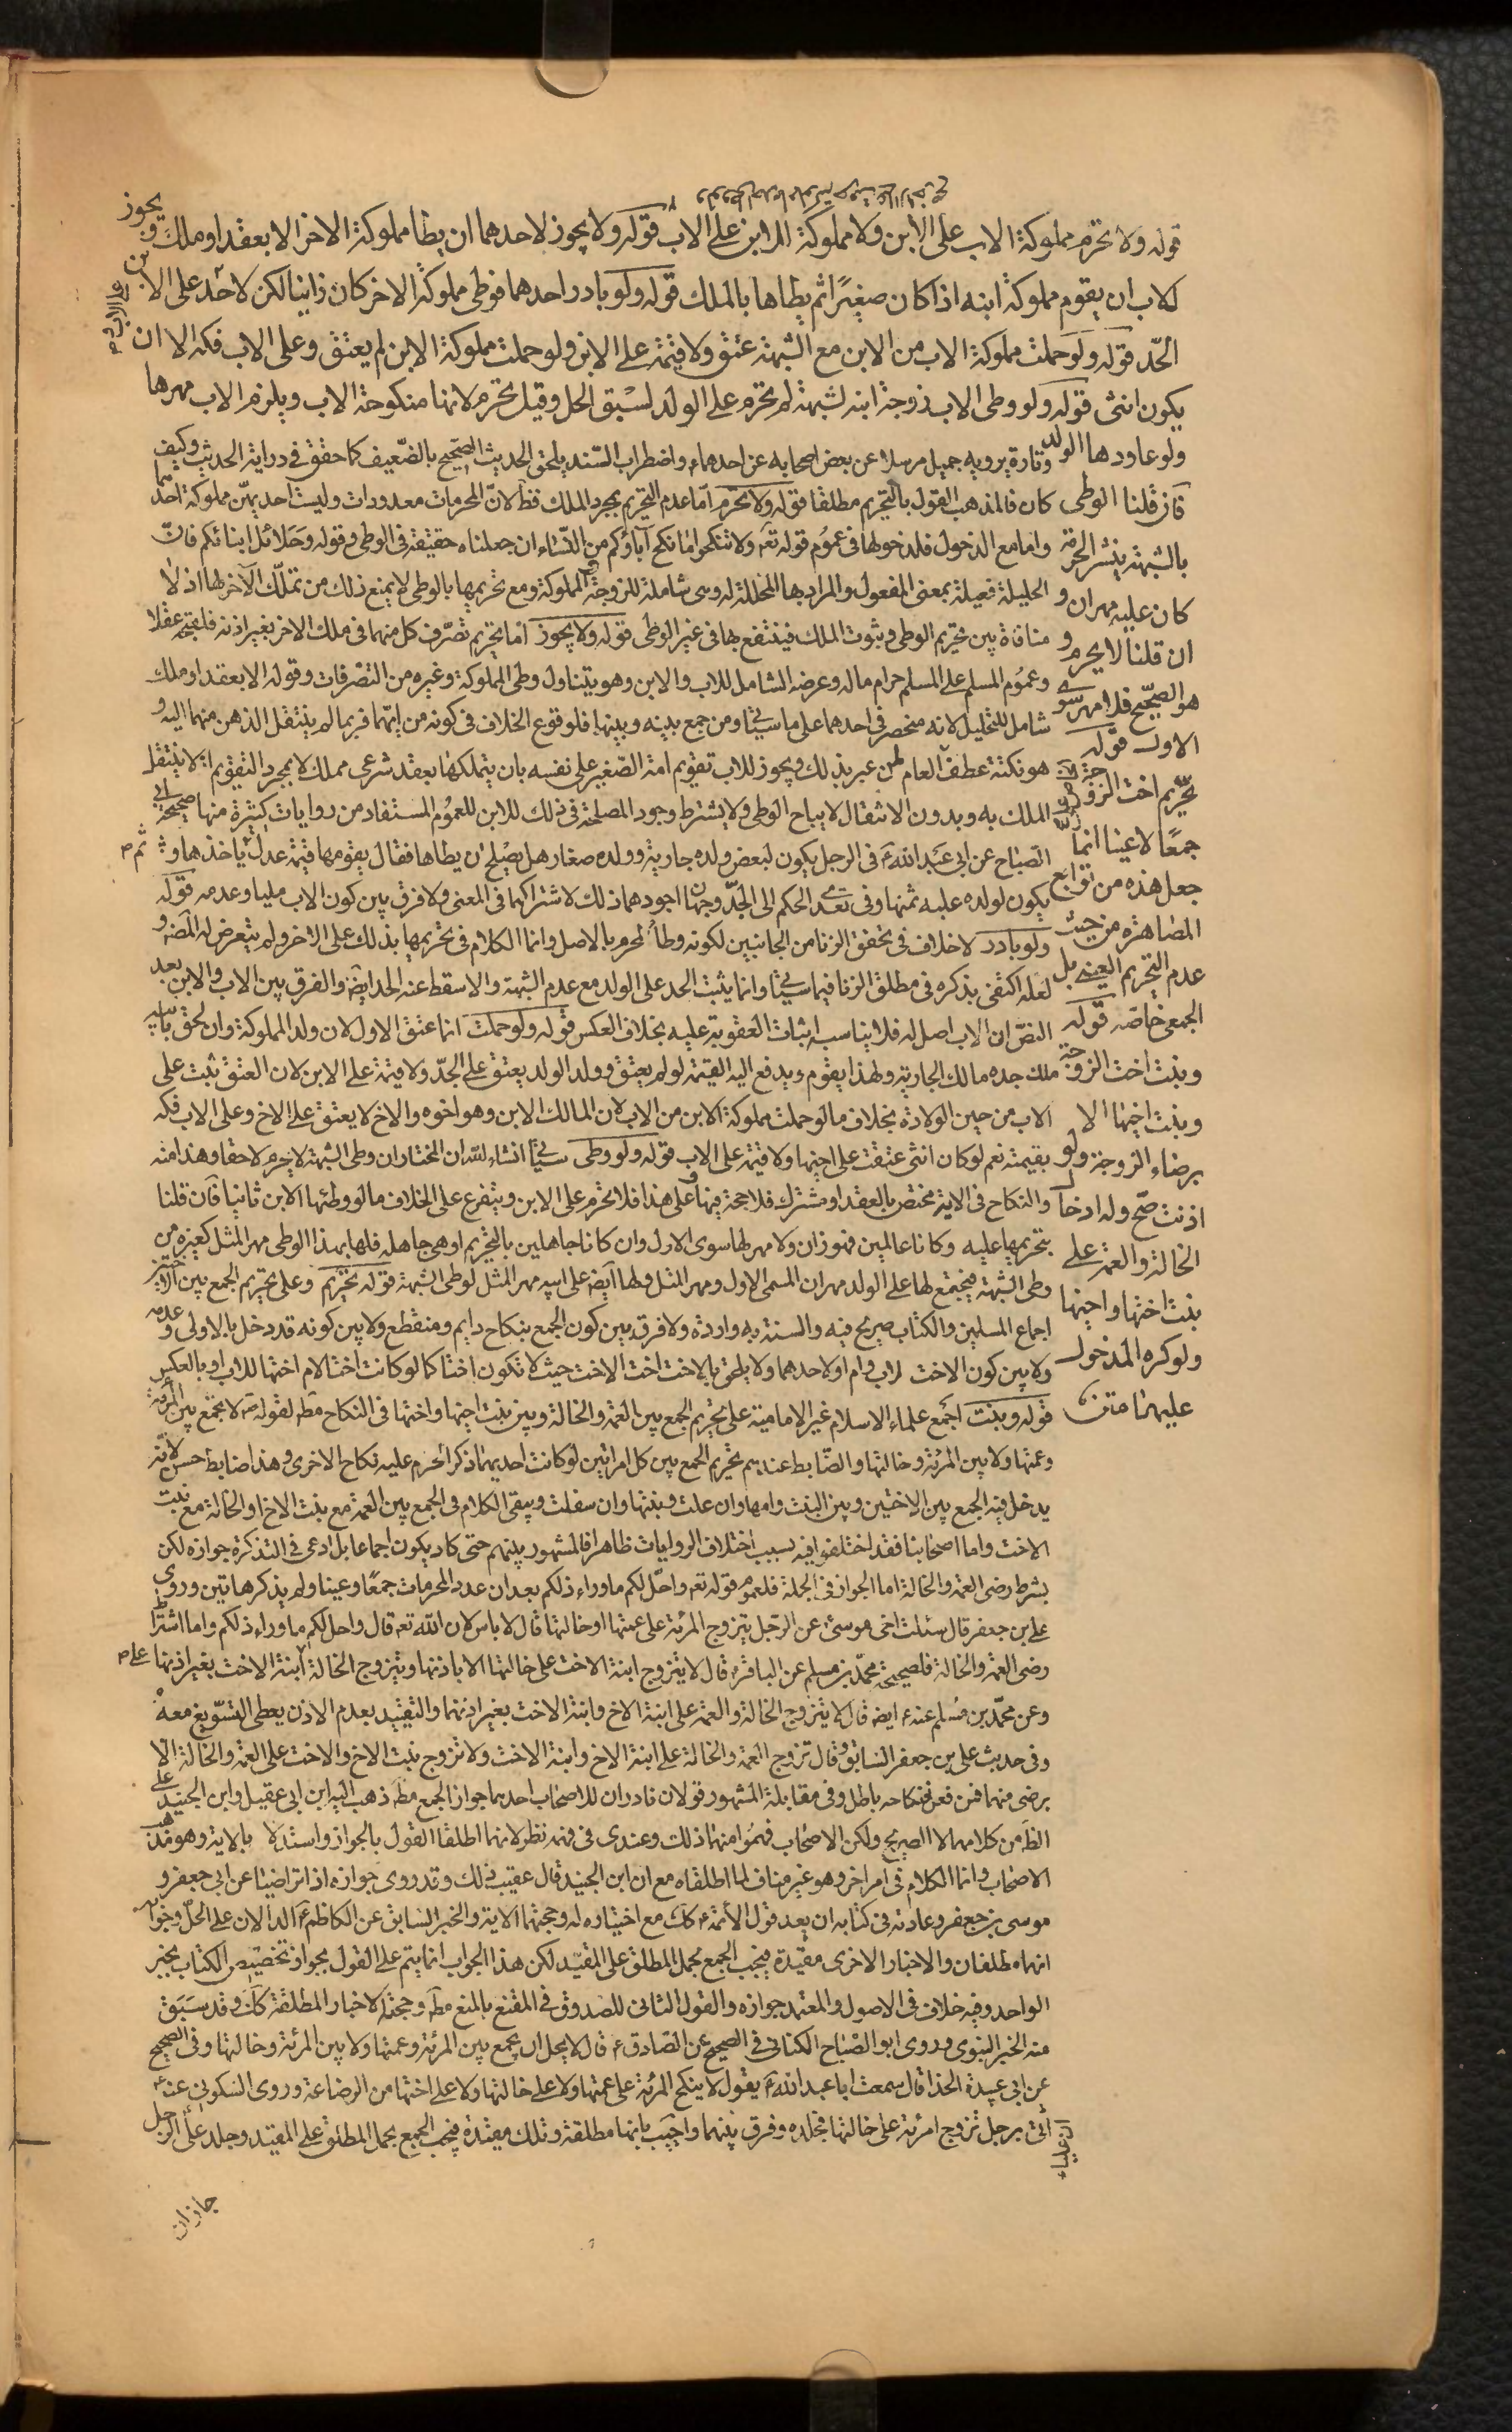 قوله ولا تحرم مملوكة الاب على الابن ولا مملوكة الابن على الاب قوله ولا يجوز لاحدهما ان يطا مملوكة الاخر الا بعقد او ملك ويجوز
للاب ان يقوم مملوكة ابنه اذا كان صغيرًا ثم يطاها بالملك قوله ولو بادر احدهما فوطى مملوكة الاخر كان زانيا لكن لا حد على الاب
الحد قوله ولو حملت مملوكة الاب من الابن مع الشبهة عتق ولا قيمة على الابن ولو حملت مملوكة الابن لم يعتق وعلى الاب فكه الا ان
يكون انثى قوله ولو وطى الاب زوجة ابنه لشبهة لم تحرم على الولد لسبق الحل وقيل تحرم لانها منكوحة الاب ويلزم الاب مهرها
ولو عاودها الولد
فان قلنا الوطى
بالشبهة ينشر الحرمة
كان عليه مهران و
ان قلنا لا يحرم و
هو الصحيح فلا مهر سوى
الاول قوله
تحريم اخت الزوجة
جمعًا لا عينا انما
جعل هذه من توابع
المصاهرة من حيث
عدم التحريم العيني بل
الجمعي خاصة قوله
وبنت اخت الزوجة
وبنت اخيها الا
برضاء الزوجة ولو
اذنت صح وله ادخال
الخالة والعمة على
بنت اختها واخيها
ولو كره المدخول
عليهما متن
وتارة يرويه جميل مرسلا عن بعض اصحابه عن احدهما ء واضطراب السند يلحق الحديث الصحيح بالضعيف كما حقق في دراية الحديث وكيف
كان فالمذهب القول بالتحريم مطلقا قوله ولا تحرم اما عدم التحريم بمجرد الملك فظ لان المحرمات معدودات وليست احديهن مملوكة احدهما
واما مع الدخول فلدخولها في عموم قوله تعه ولا تنكحوا ما نكح آباؤكم من النساء ان جعلناه حقيقة في الوطى وقوله وحلائل ابنائكم فان
الحليلة فعيلة بمعنى المفعول والمراد بها المحللة له وهى شاملة للزوجة والمملوكة ومع تحريمها بالوطى لا يمنع ذلك من تملك الآخر لها اذ لا
منافاة بين تحريم الوطى وثبوت الملك فينتفع بها في غير الوطى قوله ولا يجوز اما تحريم تصرف كل منهما في ملك الاخر بغير اذنه فلقبحه عقلا
وعموم المسلم على المسلم حرام ماله وعرضه الشامل للاب والابن وهو يتناول وطى المملوكة وغيره من التصرفات وقوله الا بعقد او ملك
شامل للتحليل لانه منحصر في احدهما على ما سيأتي ومن جمع بينه وبينها فلوقوع الخلاف في كونه من ايهما فربما لم ينتقل الذهن منهما اليه و
هو نكتة عطف العام لمن عبر بذلك ويجوز للاب تقويم امة الصغير على نفسه بان يتملكها بعقد شرعى مملك لا بمجرد التقويم اذ لا ينتقل
الملك به وبدون الانتقال لا يباح الوطى ولا يشترط وجود المصلحة في ذلك للابن للعموم المستفاد من روايات كثيرة منها صحيحة ابي
الصباح عن ابى عبد الله ع في الرجل يكون لبعض ولده جارية وولده صغار هل يصلح ان يطاها فقال يقومها قيمة عدل ثم ياخذها و
يكون لولده عليه ثمنها وفي تعدى الحكم الى الجد وجهان اجودهما ذلك لاشتراكهما في المعنى ولا فرق بين كون الاب مليا وعدمه قوله
ولو بادر لا خلاف في تحقق الزنا من الجانبين لكونه وطأ لمحرم بالاصل وانما الكلام في تحريمها بذلك على الاخر ولم يتعرض له المصنف و
لعله اكتفى بذكره في مطلق الزنا فيما سيأتي وانما يثبت الحد على الولد مع عدم الشبهة والا سقط عنه الحد ايضا والفرق بين الاب والابن بعد
النص ان الاب اصل له فلا يناسب اثبات العقوبة عليه بخلاف العكس قوله ولو حملت انما عتق الاول لان ولد المملوكة وان لحق بابيه
ملك جده مالك الجارية ولهذا يقوم ويدفع اليه القيمة لو لم يعتق وولد الولد يعتق على الجد ولا قيمة على الابن لان العتق ثبت على
الاب من حين الولادة بخلاف ما لو حملت مملوكة الابن من الاب لان المالك الابن وهو اخوه والاخ لا يعتق على الاخ وعلى الاب فكه
بقيمته نعم لو كان انثى عتقت على اخيها ولا قيمة على الاب قوله ولو وطى سيأتي انشاء الله ان المختار ان وطى الشبهة لا يحرم لاحقا وهذا منه
والنكاح في الاية مختص بالعقد او مشترك فلا حجة فيها وعلى هذا فلا تحرم على الابن ويتفرع على الخلاف ما لو وطئها الابن ثانيا فان قلنا
بتحريمها عليه وكانا عالمين فهو زان ولا مهر لها سوى الاول وان كانا جاهلين بالتحريم او هي جاهلة فلها بهذا الوطى مهر المثل كغيره من
وطى الشبهة فيجتمع لها على الولد مهران المسمى الاول ومهر المثل ولها ايضا على ابيه مهر المثل لوطى الشبهة قوله تحريم وعلى تحريم الجمع بين الاختين
اجماع المسلمين والكتاب صريح فيه والسنة به واردة ولا فرق بين كون الجمع بنكاح دايم ومنقطع ولا بين كونه قد دخل بالاولى وعدمه
ولا بين كون الاخت لاب وام او لاحدهما ولا يلحق بالاخت اخت الاخت حيث لا تكون اختا كما لو كانت اخت الام اختها للاب او بالعكس
قوله وبنت اجمع علماء الاسلام غير الامامية على تحريم الجمع بين العمة والخالة وبين بنت اخيها واختها في النكاح مطه لقوله ص لا تجمع بين المرئة
وعمتها ولا بين المرئة وخالتها والضابط عندهم تحريم الجمع بين كل امراتين لو كانت احديهما ذكرا لحرم عليه نكاح الاخرى وهذا ضابط حسن لانه
يدخل فيه الجمع بين الاختين وبين البنت وامها وان علت وبنتها وان سفلت ويبقى الكلام في الجمع بين العمة مع بنت الاخ او الخالة مع بنت
الاخت واما اصحابنا فقد اختلفوا فيه بسبب اختلاف الروايات ظاهرا فالمشهور بينهم حتى كاد يكون اجماعا بل ادعى في التذكرة جوازه لكن
بشرط رضى العمة والخالة اما الجواز في الجملة فلعموم قوله تعه واحل لكم ما وراء ذلكم بعد ان عدد المحرمات جمعًا وعينا ولم يذكر هاتين وروى
على بن جعفر قال سئلت اخى موسى عن الرجل يتزوج المرئة على عمتها او خالتها قال لا باس لان الله تعه قال واحل لكم ما وراء ذلكم واما اشتراط
رضى العمة والخالة فلصحيحة محمد بن مسلم عن الباقر ء قال لا يتزوج ابنة الاخت على خالتها الا باذنها ويتزوج الخالة على ابنة الاخت بغير اذنها
وعن محمد بن مسلم عنه ء ايضا قال لا يتزوج الخالة والعمة على ابنة الاخ وابنة الاخت بغير اذنهما والتقييد بعدم الاذن يعطى التسويغ معه
وفي حديث على بن جعفر السابق وقال تزوج العمة والخالة على ابنة الاخ وابنة الاخت ولا تزوج بنت الاخ والاخت على العمة والخالة الا
برضى منهما فمن فعل فنكاحه باطل وفي مقابلة المشهور قولان نادران للاصحاب احدهما جواز الجمع مطه ذهب اليه ابن ابى عقيل وابن الجنيد على
الظ من كلامهما لا الصريح ولكن الاصحاب فهموا منهما ذلك وعندى في فهمه نظر لانهما اطلقا القول بالجواز واستدلا بالاية وهو مذهب
الاصحاب وانما الكلام في امر اخر وهو غير مناف لما اطلقاه مع ان ابن الجنيد قال عقيب ذلك وقد روى جوازه اذا تراضيتا عن ابى جعفر و
موسى بن جعفر وعادته في كتابه ان يعد قول الائمة ء كك مع اختياره له وحجتهما الاية والخبر السابق عن الكاظم ع الدالان على الحل وجوابه
انهما مطلقان والاخبار الاخرى مقيدة فيجب الجمع بحمل المطلق على المقيد لكن هذا الجواب انما يتم على القول بجواز تخصيص الكتاب بخبر
الواحد وفيه خلاف في الاصول والمعتمد جوازه والقول الثانى للصدوق في المقنع بالمنع مطه وحجته الاخبار المطلقة كك وقد سبق
منه الخبر النبوى وروى ابو الصباح الكنانى في الصحيح عن الصادق ء قال لا يحل ان يجمع بين المرئة وعمتها ولا بين المرئة وخالتها وفي الصحيح
عن ابى عبيدة الحذا قال سمعت ابا عبد الله ع يقول لا ينكح المرئة على عمتها ولا على خالتها ولا على اختها من الرضاعة وروى السكونى عنه ء
ان عليا ء اتى برجل تزوج امرئة على خالتها فجلده وفرق بينهما واجيب بانها مطلقة وتلك مقيدة فيجب الجمع بحمل المطلق على المقيد وجلد على الرجل
جاز ان